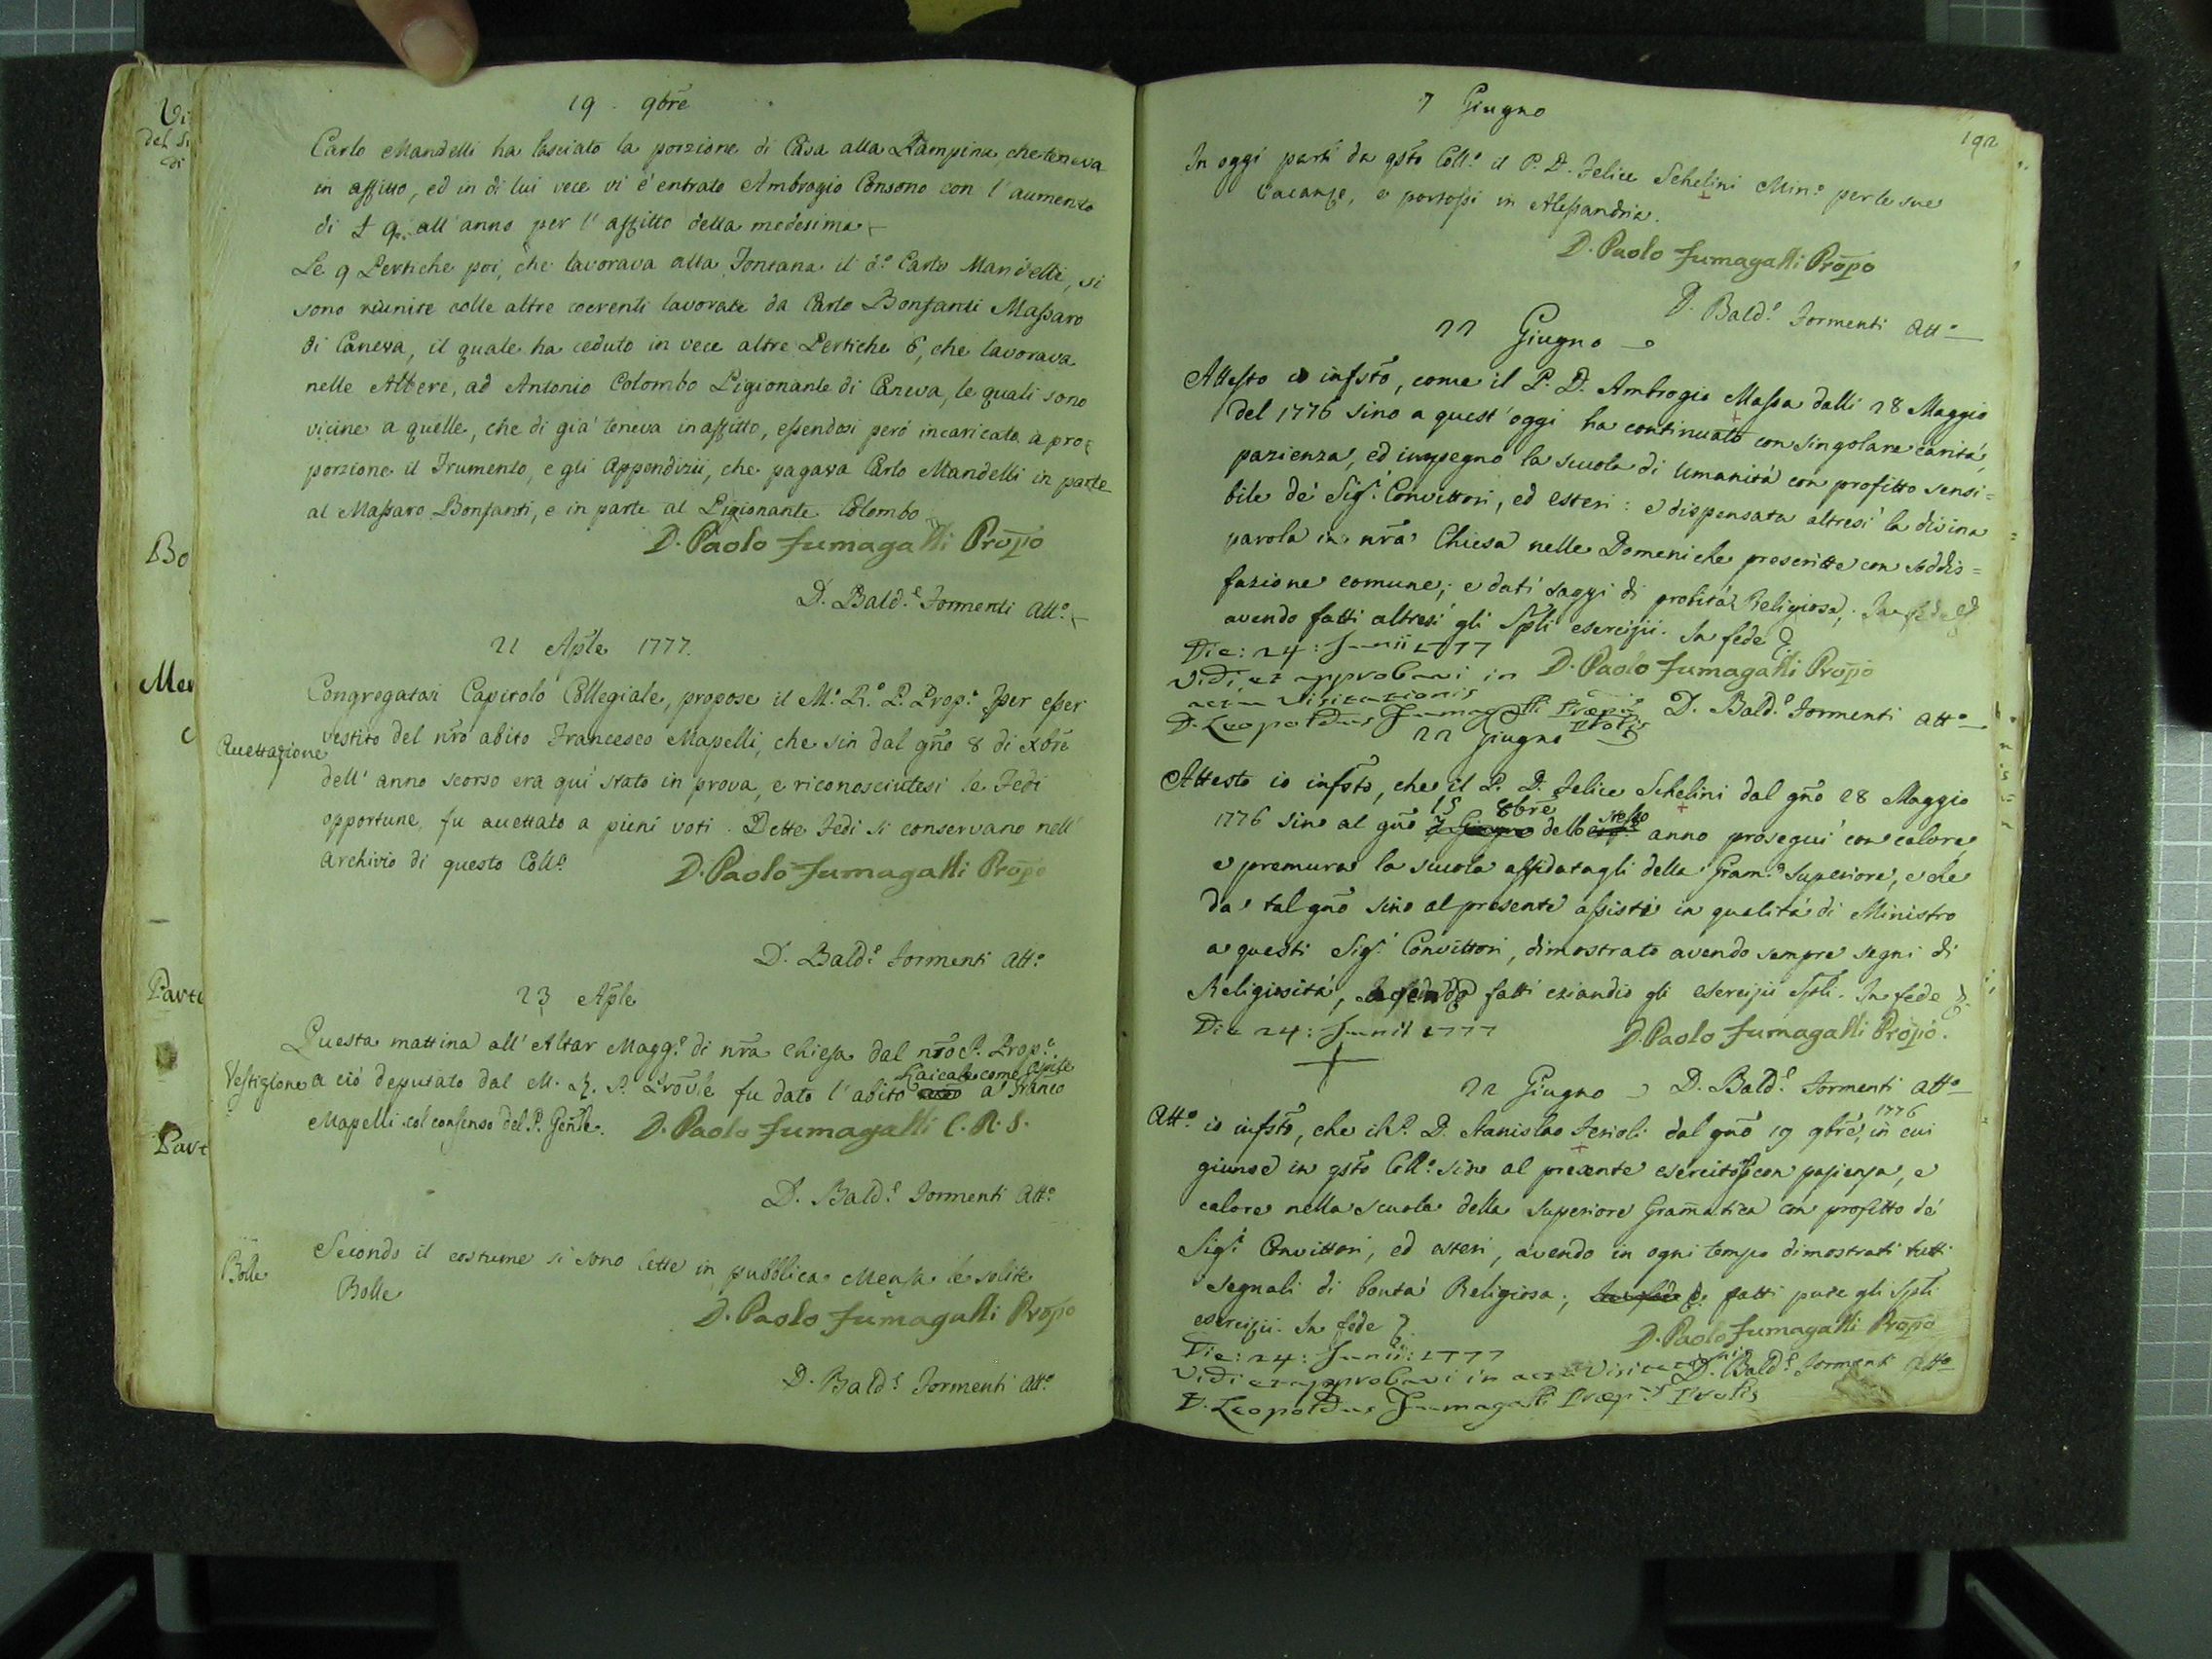 19. 9bre
Carlo Mandelli ha lasciato la porzione di Casa alla Rampina, che teneva
in affitto, ed in di lui vece vi é entrato Ambrogio Consono con l'aumento
di £ 9. all'anno per l'affitto della medesima
Le 9 Pertiche poi, che lavorava alla Fontana il d.o Carlo Mandelli, si
sono riunite colle altre coerenti lavorate da Carlo Bonfanti Massaro
di Caneva, il quale ha ceduto in vece altre Pertiche 6, che lavorava
nelle Albere, ad Antonio Colombo Pigionante di Caneva, le quali sono
vicine a quelle, che di giá teneva in affitto, essendosi peró incaricato a pro=
porzione il Frumento, e gli Appendizii, che pagava Carlo Mandelli in parte
al Massaro Bonfanti, e in parte al Pigionante Colombo
D. Paolo Fumagalli Propo
D. Bald.e Formenti Att.o
21 Aple 1777.
Congregatosi Capitolo Collegiale, propose il M.o R.o P. Prop.o per esser
vestito del nro abito Francesco Mapelli, che sin dal gno 8 di Xbre
Accettazione
dell'anno scorso era quí stato in prova, e riconosciutesi le Fedi
opportune, fu accettato a pieni voti. Dette Fedi si conservano nell'
Archivio di questo Coll.o
D. Paolo Fumagalli Propo
D. Bald.e Formenti Att.o
23 Aple
Questa mattina all'Altar Magg.e di nra Chiesa dal nro P. Prop.o
Vestizione a ció deputato dal M. R. P. Provle fu dato l'abito Laicale come Ospite a Franco
Mapelli col consenso del P. Genle. D. Paolo Fumagalli C. R. S.
D. Bald.e Formenti Att.o
Bolle
Secondo il costume si sono lette in pubblica Mensa le solite
Bolle
D. Paolo Fumagalli Propo
D. Bald.e Formenti Att.o
192
7 Giugno
In oggi partí da qsto Coll.o il P. D. Felice Schelini Min.o per le sue
Vacanze, e portossi in Alessandria.
D. Paolo Fumagalli Propo
D. Bald.e Formenti Att.o
22 Giugno
Attesto io infsto, come il P. D. Ambrogio Massa dalli 28 Maggio
del 1776 sino a quest'oggi ha continuato con singolare caritá,
pazienza, ed impegno la scuola di Umanitá con profitto sensi=
bile dé Sig.i Convittori, ed esteri: e dispensata altresí la divina
parola in nra Chiesa nelle Domeniche prescritte con soddis=
fazione comune; e dati saggi di probitá Religiosa; In fede
avendo fatti altresí gli Spli esercizii. In fede
Die: 24: Junii 1777
Vidi, et approbavi in D. Paolo Fumagalli Propo
actu Visitationis
D. Leopoldus Fumagalli Præp.s Provlis D. Bald.e Formenti Att.o
22 Giugno
Attesto io infsto, che il P. D. Felice Schelini dal gno 28 Maggio
1776 sino al gno 15 8bre dello stesso anno proseguí con calore,
e premura la scuola affidatagli della Gram.a Superiore, e che
da tal gno sino al presente assisté in qualitá di Ministro
a questi Sig.i Convittori, dimostrato avendo sempre segni di
Religiositá, avendo fatti eziandio gli esercizii Spli. In fede
Die 24: Junii 1777 D. Paolo Fumagalli Propo.
22 Giugno D. Bald.e Formenti Att.o
Att.o io infsto, che il P. D. Stanislao Ferioli dal gno 19 9bre, 1776 in cui
giunse in qsto Coll.o sino al presente esercitossi con pazienza, e
calore nella scuola della Superiore Gramatica con profitto dé
Sig.i Convittori, ed esteri, avendo in ogni tempo dimostrati tutti
segnali di bontá Religiosa; fatti pure gli Spli
esercizii. In fede
D. Paolo Fumagalli Propo
Die: 24: Junii: 1777
Vidi et approbavi in actu Visitationis D. Bald.e Formenti Att.o
D. Leopoldus Fumagalli Præp.s Provlis